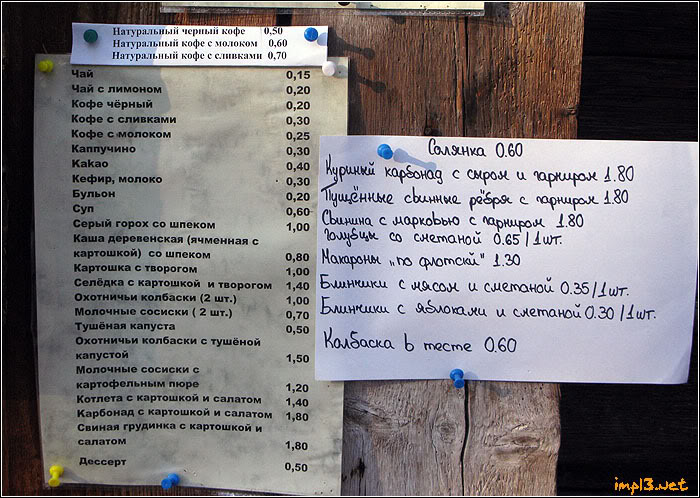 Натуральный черный кофе 0,50
Натуральный кофе с молоком 0,60
Натуральный кофе с сливками 0,70
Чай 0,15
Чай с лимоном 0,20
Кофе чёрный 0,20
Кофе с сливками 0,30
Кофе с молоком 0,25
Каппучино 0,30
Какао 0,40
Кефир, молоко 0,30
Бульон 0,20
Суп 0,60
Серый горох со шпеком 1,00
Каша деревенская (ячменная с
картошкой) со шпеком 0,80
Картошка с творогом 1,00
Селёдка с картошкой и творогом 1,40
Охотничьи колбаски (2 шт.) 1,00
Молочные сосиски ( 2 шт.) 0,70
Тушёная капуста 0,50
Охотничьи колбаски с тушёной
капустой 1,50
Молочные сосиски с
картофельным пюре 1,20
Котлета с картошкой и салатом 1,40
Карбонад с картошкой и салатом 1,80
Свиная грудинка с картошкой и
салатом 1,80
Дессерт 0,50
Солянка 0.60
Куриный карбонад с сыром и гарниром 1.80
Тушённые свинные рёбра с гарниром 1.80
Свинина с марковью с гарниром 1.80
Голубцы со сметаной 0.65/1шт.
Макароны „по флотски" 1.30
Блинчики с мясом и сметаной 0.35/1шт.
Блинчики с яблоками и сметаной 0.30/1шт.
Колбаска в тесте 0.60
impl3.net